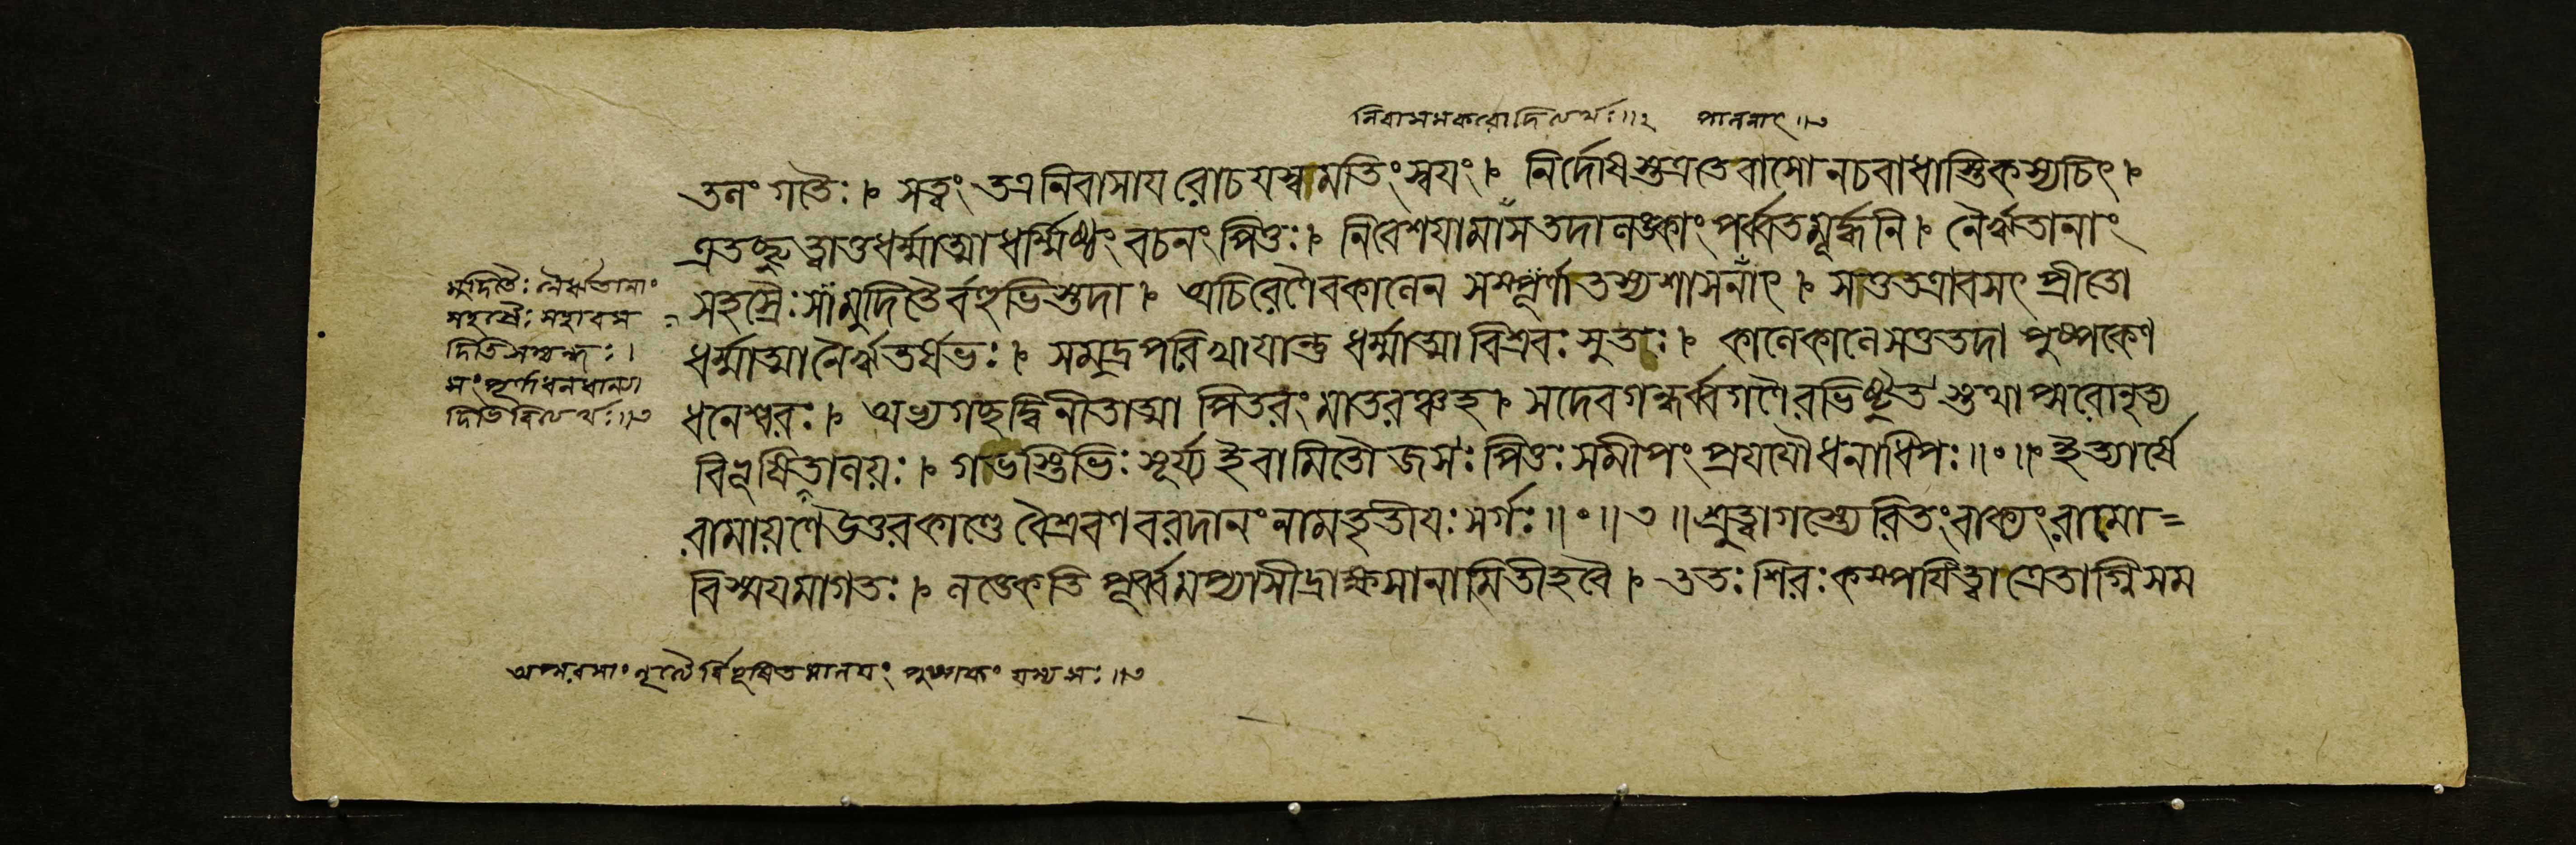 নিবাসমকরোদিত্যর্থঃ॥২ পালনাৎ॥৩
তলং গতৈঃ। সত্বং তত্র নিবাসায রোচযস্বামতিং স্বযং। নির্দোষস্তত্রতেবাসো নচবাধাস্তিকস্যচিৎ।
এতচ্ছ্রুত্বাতুধর্ম্মাত্মা ধর্ম্মিষ্ঠং বচনং পিতুঃ। নিবেশযামাস তদা লঙ্কাং পর্ব্বতমূর্দ্ধনি। নৈর্ঋতানাং
সহস্রৈঃ সামুদিতৈর্বহুভিস্তদা। অচিরেণৈবকালেন সম্পূর্ণা তস্যশাসনাৎ। সতুতত্রাবসৎ প্রীতো
ধর্ম্মাত্মা নৈর্ঋতর্ষভঃ। সমুদ্রপরিখাযান্তু ধর্ম্মাত্মা বিশ্রবঃ সুতঃ। কালেকালেসতুতদা পুষ্পকেণ
ধনেশ্বরঃ। অভ্যগচ্ছদ্বিনীতাত্মা পিতরং মাতরঞ্চহ। সদেবগন্ধর্ব্বগণৈরভিষ্টুত স্তথাপ্সরোনৃত্য
বিভূষিতালয়ঃ। গভস্তিভিঃ সূর্য্য ইবামিতৌজসঃ পিতুঃ সমীপং প্রযযৌ ধনাধিপঃ॥°॥ ইত্যার্ষে
রামায়ণে উত্তরকাণ্ডে বৈশ্রবণ বরদানং নামতৃতীযঃ সর্গঃ॥°॥৩॥ শ্রুত্বাগস্ত্যেরিতং বাক্যং রামো=
বিস্ময়মাগতঃ। লঙ্কেতি পূর্ব্বমপ্যাসীদ্রাক্ষসানামিতীহবৈ। ততঃ শিরঃ কম্পযিত্বা ত্রেতাগ্নিসম
মুদিতৈঃ নৈর্ঋতানাং
সহস্রৈঃ সহাবস
দিতিসম্বন্ধঃ।
সংপূর্ণাধনধান্যা
দিভিরিত্যর্থঃ॥৩
অপ্সরসাং নৃত্যৈর্বিভূষিতমালযং পুষ্পকং যস্য সঃ॥৩